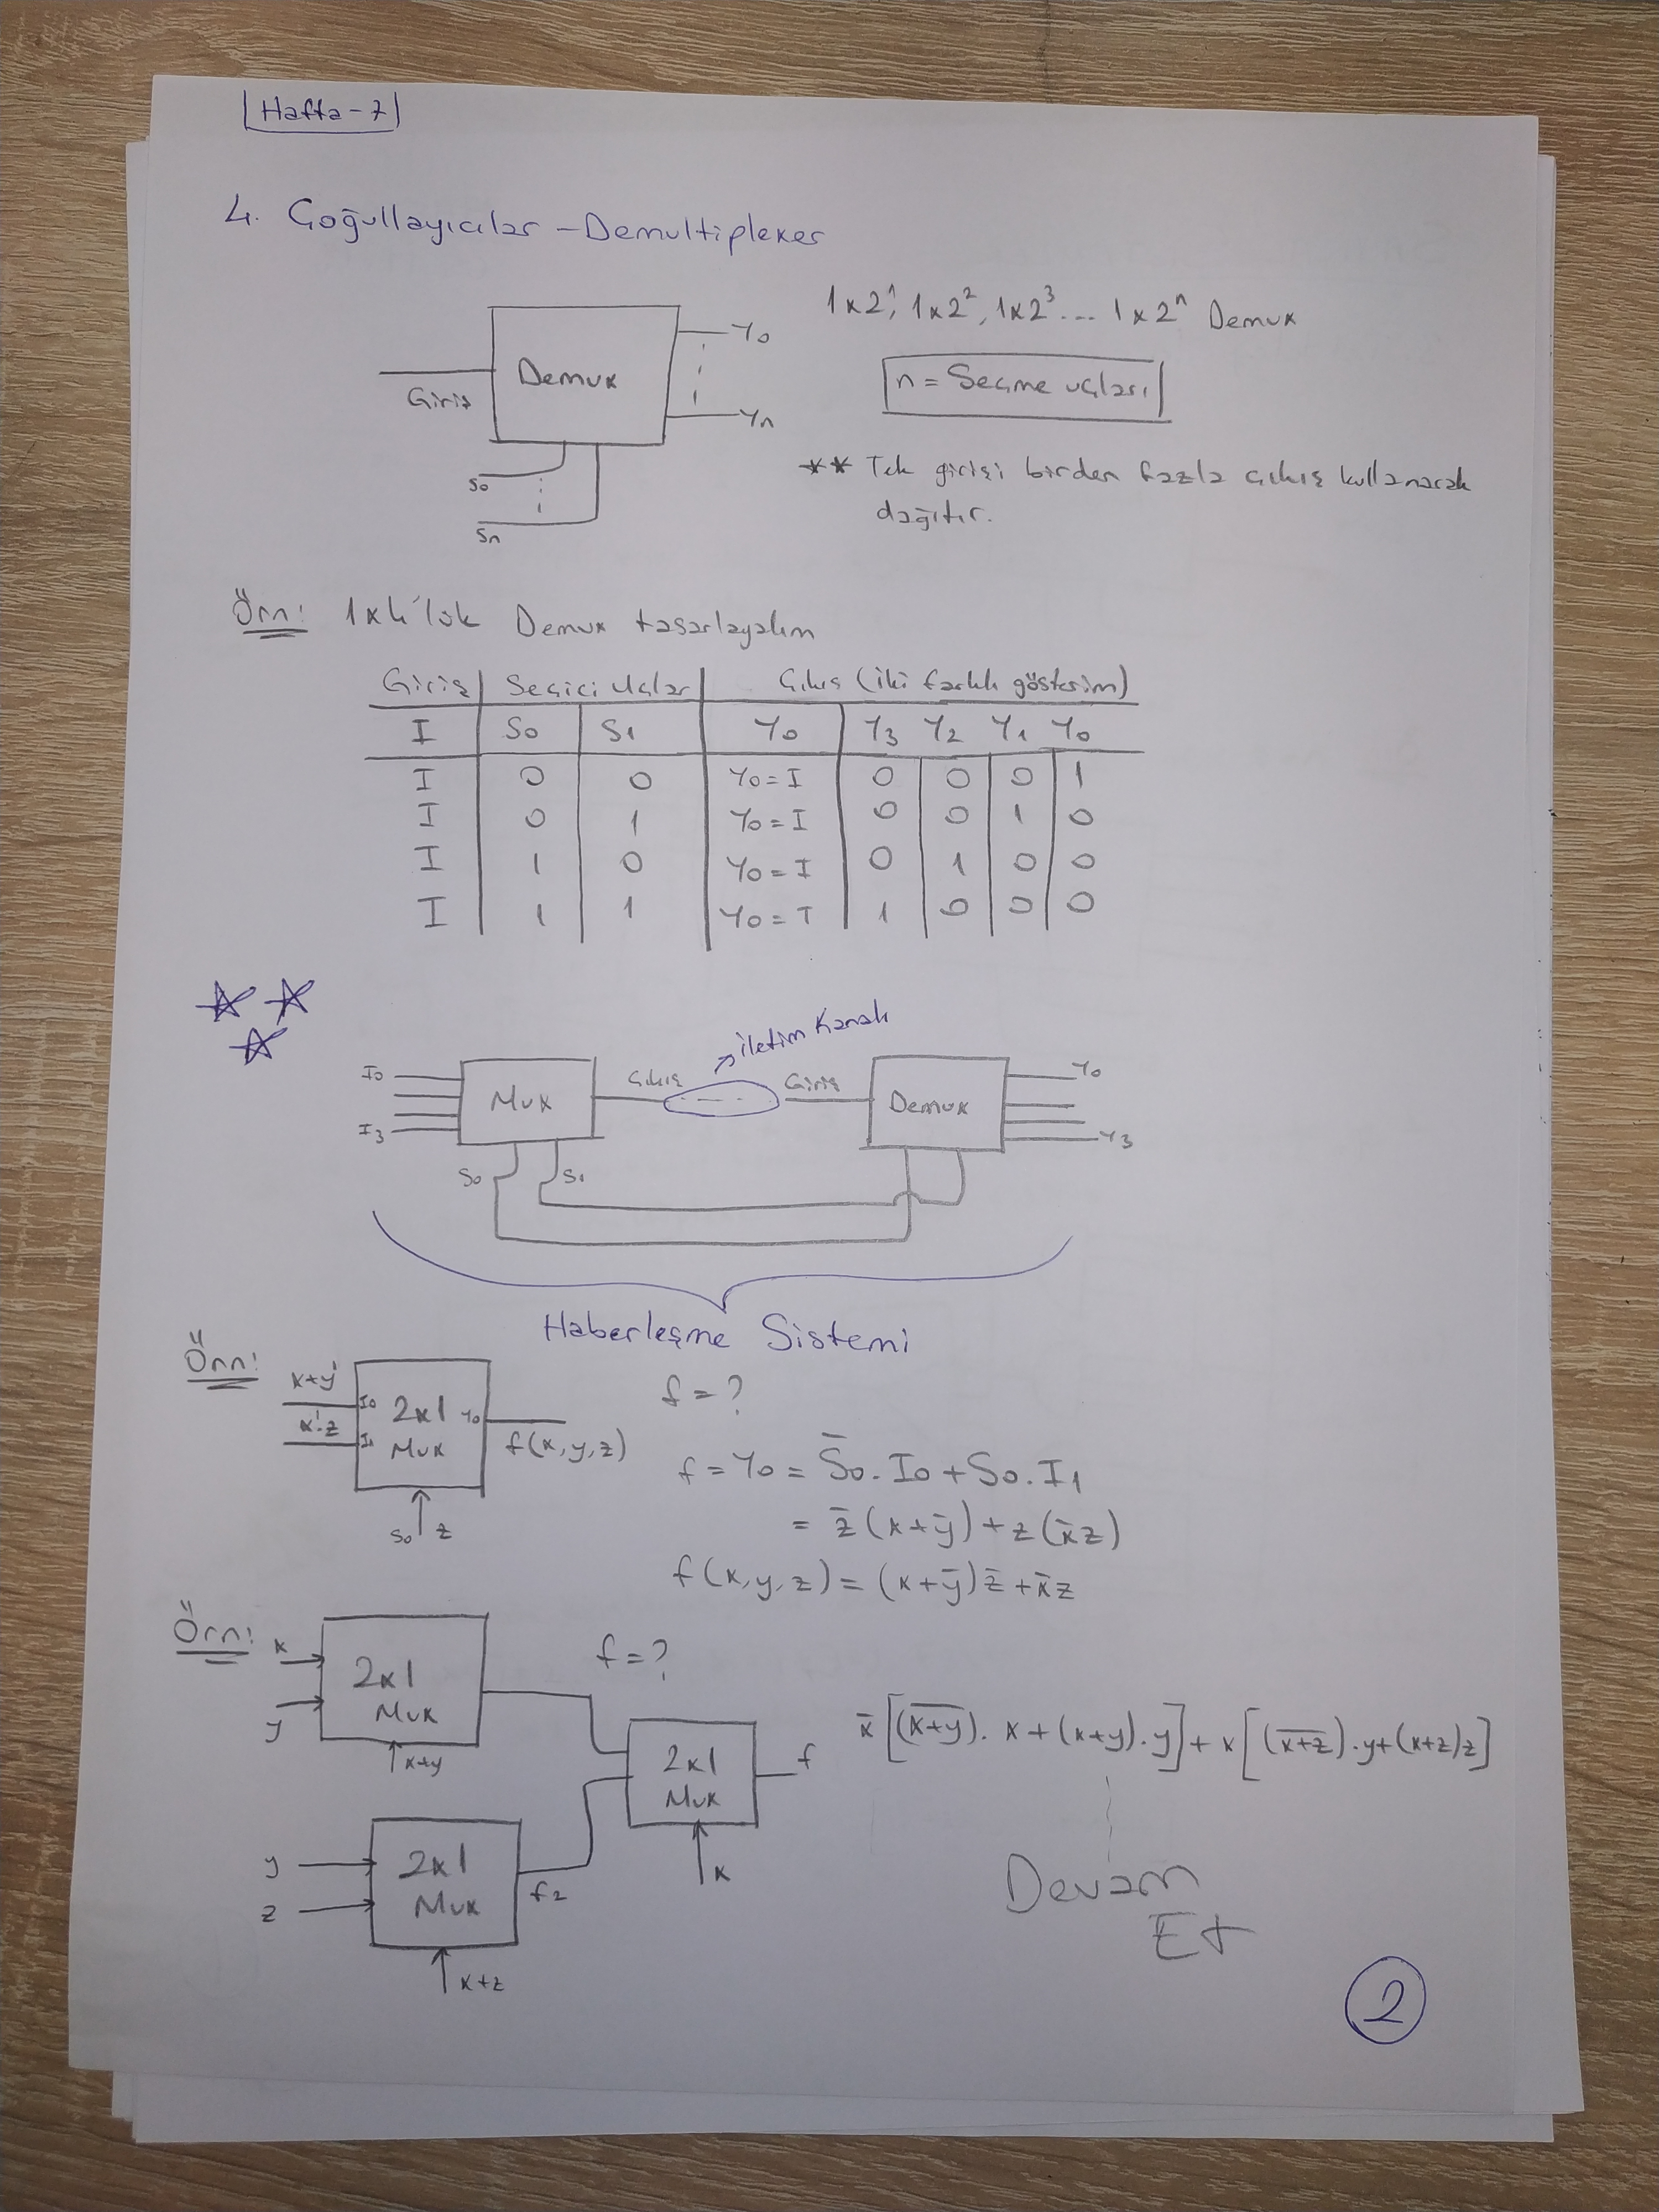 Hafta-7
4. Çoğullayıcılar - Demultiplexer
Giriş
Demux
S0
Sn
Y0
Yn
1x2¹, 1x2², 1x2³ ... 1x2ⁿ Demux
n = Seçme uçları
** Tek girişi birden fazla çıkış kullanarak
dağıtır.
Örn: 1x4'lük Demux tasarlayalım
Giriş | Seçici Uçlar | Çıkış (iki farklı gösterim)
I | S0 | S1 | Y0 | Y3 | Y2 | Y1 | Y0
I | 0 | 0 | Y0=I | 0 | 0 | 0 | 1
I | 0 | 1 | Y0=I | 0 | 0 | 1 | 0
I | 1 | 0 | Y0=I | 0 | 1 | 0 | 0
I | 1 | 1 | Y0=I | 1 | 0 | 0 | 0
iletim kanalı
I0
I3
Mux
Çıkış
Giriş
Demux
Y0
Y3
S0
S1
Haberleşme Sistemi
Örn:
x+y'
x'.z
I0
I1
2x1
Mux
Y0
f(x,y,z)
S0
z
f=?
f = Y0 = S̄0.I0 + S0.I1
= z̄(x+ȳ) + z(x̄z)
f(x,y,z) = (x+ȳ)z̄ + x̄z
Örn:
x
y
2x1
Mux
x+y
f=?
y
z
2x1
Mux
x+z
f2
2x1
Mux
x
f
x̄[(x̅+̅y̅).x + (x+y).y] + x[(x̅+̅z̅).y + (x+z)z]
Devam
Et
2